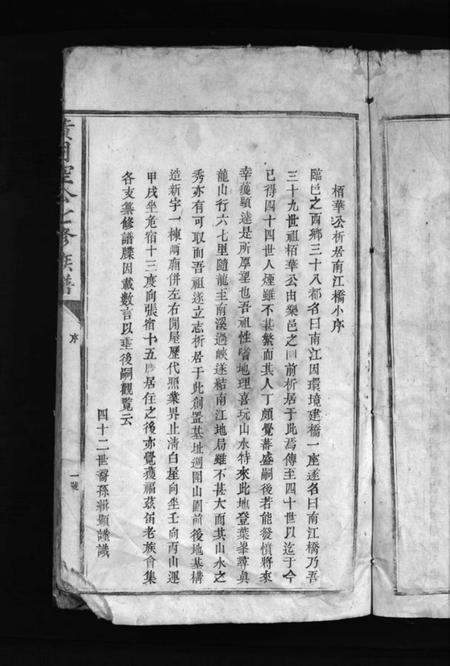 栢華公析居南江橋小序
臨邑之西鄉三十八都名曰南江因環境建橋一座遂名曰南江橋乃吾
三十九世祖栢華公由崇邑之 前析居于此焉傳至四十世以迄于今
已得四十四世人煙雖不甚繁而其人丁頗覺蕃盛嗣後若能發憤將來
幸獲顯達是所厚望也吾祖性嗜地理喜玩山水特來此地登葉峯尋眞
龍山行六七里隨龍主南溪過峽遂結南江地局雖不甚大而其山水之
秀亦有可取而吾祖遂立志析居于此創置基址週圍山園前後地基構
造新宇一棟兩廂併左右閒屋歷代照業界止清白屋向坐壬向丙山運
甲戌坐危宿十三度向張宿十五度居住之後亦覺獲福茲苗老族會集
各支纂修譜牒因戴數言以垂後嗣觀覽云
四十二世嗣孫 顯謙識
公七修族譜
序
一號